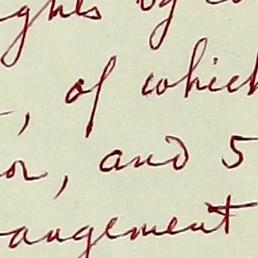 ghts by
, of which
or, and 5
rangement